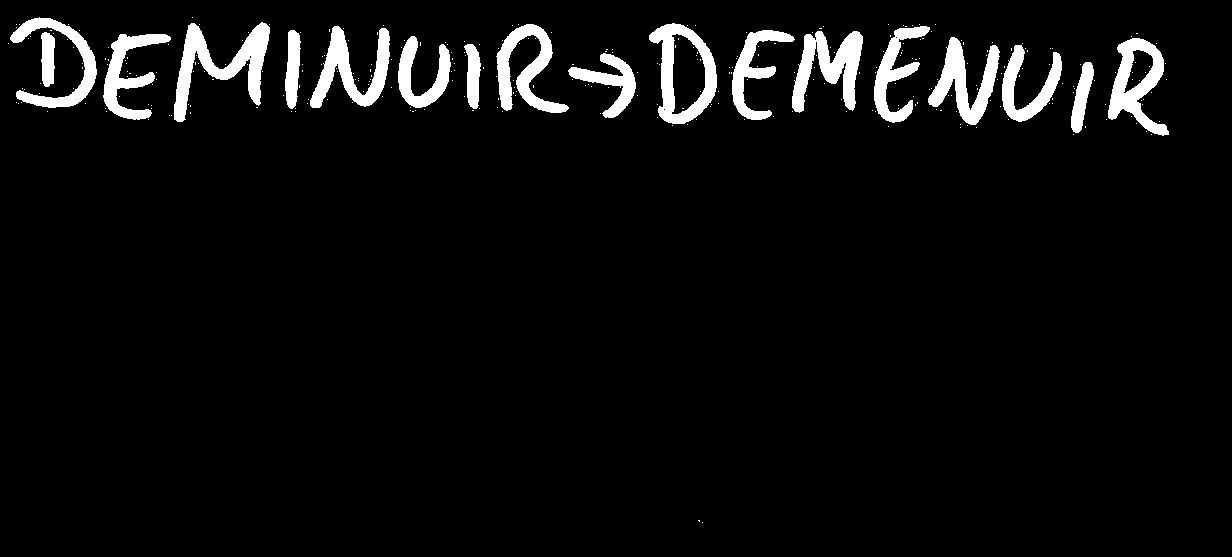 DEMINUIR→DEMENUIR